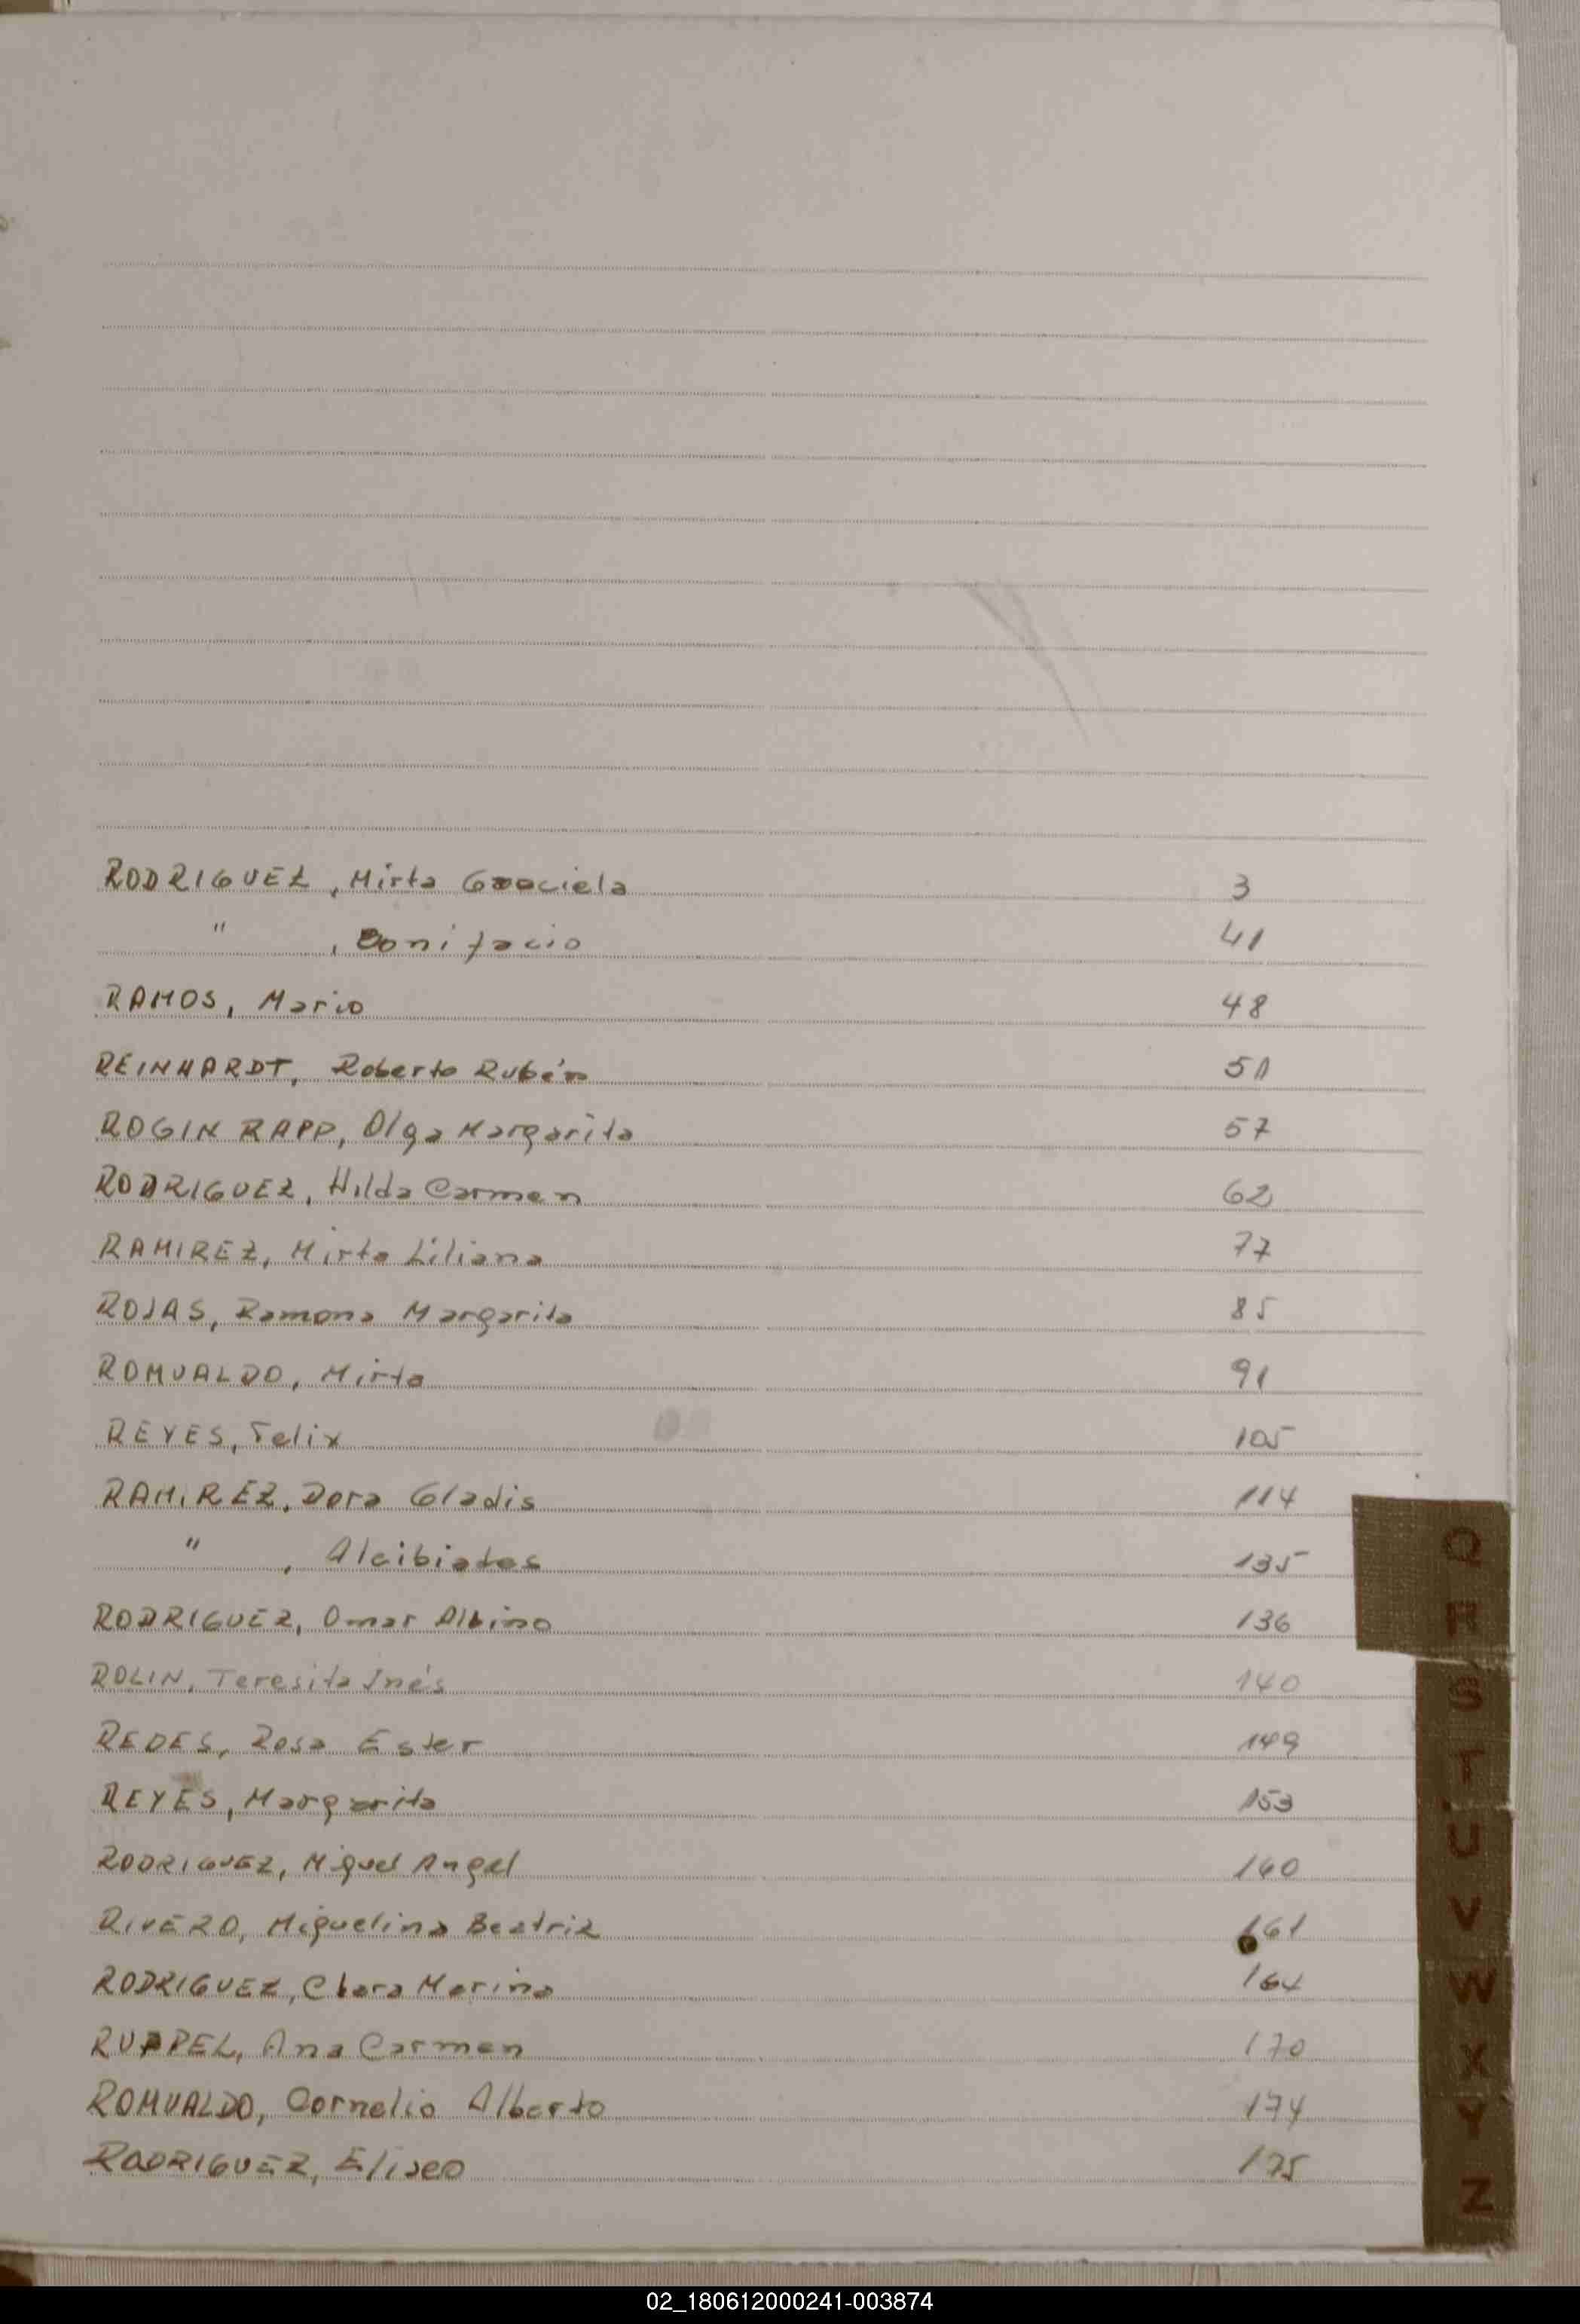 RODRIGUEZ, Mirta Graciela 3
" , Bonifacio 41
RAMOS, Mario 48
REINHARDT, Roberto Rubén 50
ROGIN RAPP, Olga Margarita 57
RODRIGUEZ, Hilda Carmen 62
RAMIREZ, Mirta Liliana 77
ROJAS, Ramona Margarita 85
ROMUALDO, Mirta 91
REYES, Felix 105
RAMIREZ, Dora Gladis 114
" , Alcibiades 135
RODRIGUEZ, Omar Albino 136
ROLIN, Teresita Inés 140
REDES, Rosa Ester 149
REYES, Margarita 153
RODRIGUEZ, Miguel Angel 160
RIVERO, Miguelina Beatriz 161
RODRIGUEZ, Clara Marina 164
RUPPEL, Ana Carmen 170
ROMUALDO, Cornelio Alberto 174
RODRIGUEZ, Eliseo 175
Q
R
S
T
U
V
W
X
Y
Z
02_180612000241-003874